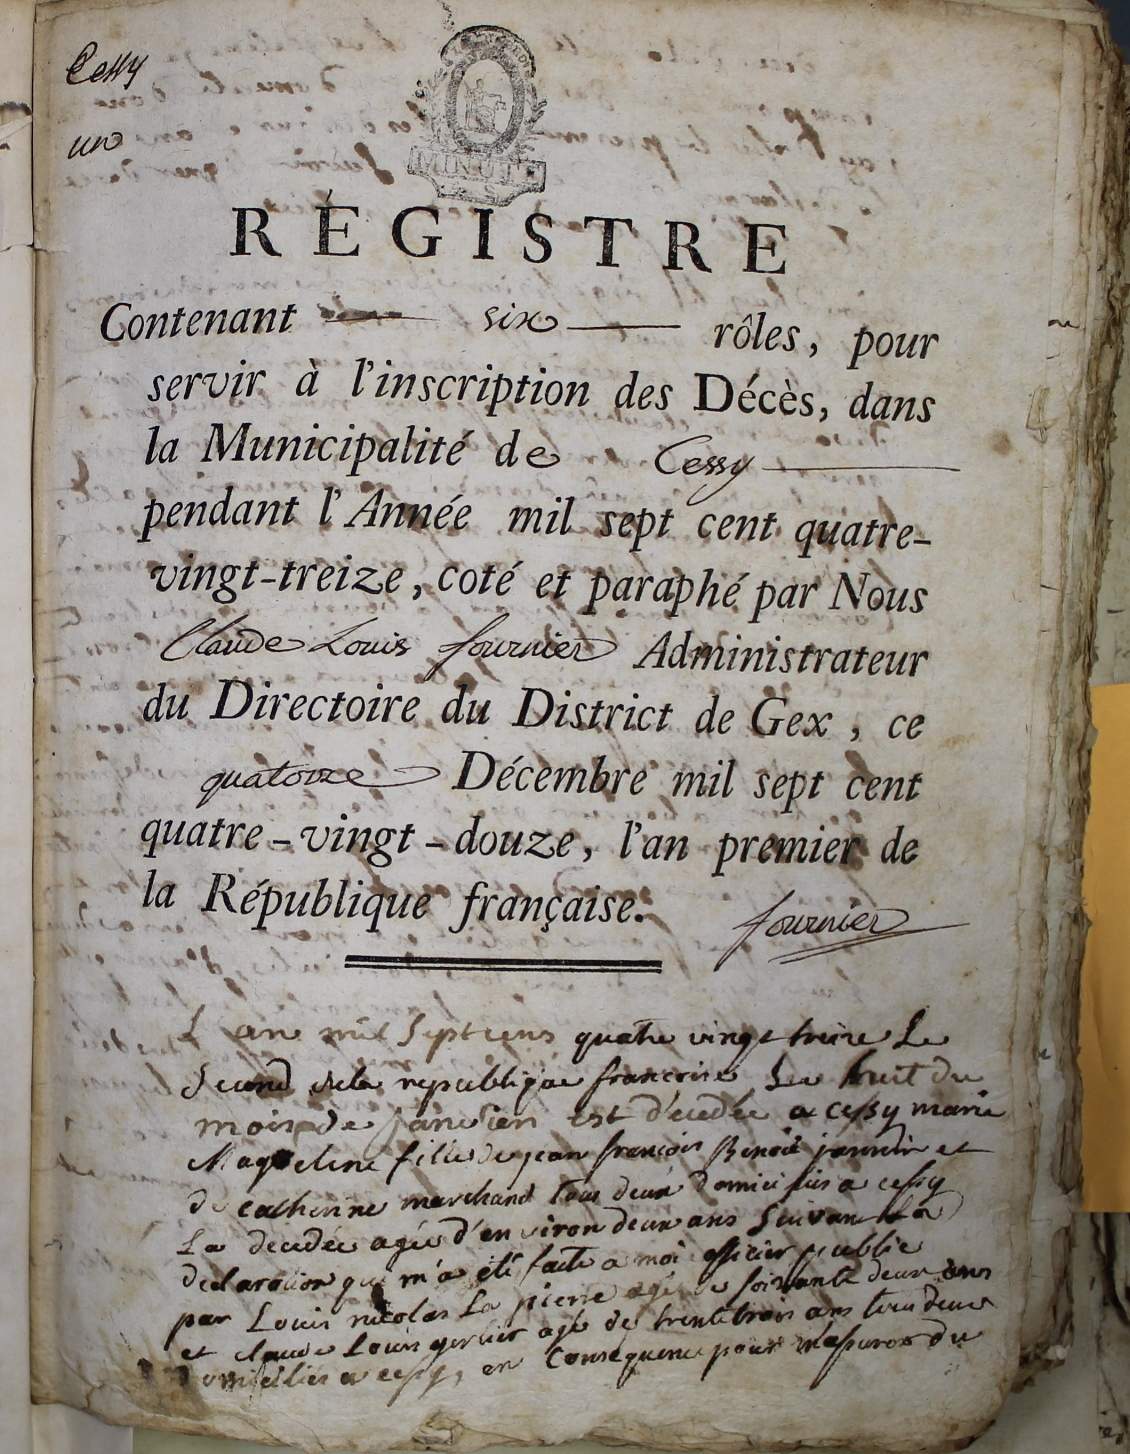 Cessy
un
MINUTE
RÉGISTRE
Contenant six rôles, pour
servir à l'inscription des Décès, dans
la Municipalité de Cessy
pendant l'Année mil sept cent quatre-
vingt-treize, coté et paraphé par Nous
Claude Louis fournier Administrateur
du Directoire du District de Gex, ce
quatorze Décembre mil sept cent
quatre-vingt-douze, l'an premier de
la République française.
fournier
L'an mil Sept cens quatre vingt treize Le
Second de la republique francoise Le huit du
mois de janvier est décedée a cessy marie
Maguelene fille de jean françois Benoit jannin et
de catherine marchand tous deux domicilies a cessy
La decedée agée d'environ deux ans Suivant la
declaration qui m'a été faite a moi officier public
par Louis nicolas La pierre agé de soixante deux ans
et claude Louis gerlier agé de trente trois ans tous deux
domicilies a cessy, en Consequence pour m'assurer du